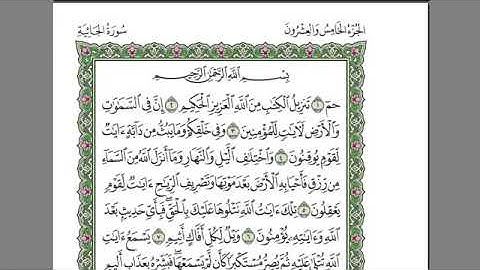 سُورَةُ الجَاثِيَةِ الجُزْءُ الخَامِسُ وَالعِشْرُونَ
بِسْمِ اللَّهِ الرَّحْمَٰنِ الرَّحِيمِ
حمٓ ١ تَنزِيلُ الْكِتَٰبِ مِنَ اللَّهِ الْعَزِيزِ الْحَكِيمِ ٢ إِنَّ فِي السَّمَٰوَٰتِ
وَالْأَرْضِ لَآيَٰتٍ لِّلْمُؤْمِنِينَ ٣ وَفِي خَلْقِكُمْ وَمَا يَبُثُّ مِن دَابَّةٍ ءَايَٰتٌ
لِّقَوْمٍ يُوقِنُونَ ٤ وَاخْتِلَٰفِ الَّيْلِ وَالنَّهَارِ وَمَا أَنزَلَ اللَّهُ مِنَ السَّمَاءِ
مِن رِّزْقٍ فَأَحْيَا بِهِ الْأَرْضَ بَعْدَ مَوْتِهَا وَتَصْرِيفِ الرِّيَٰحِ ءَايَٰتٌ لِّقَوْمٍ
يَعْقِلُونَ ٥ تِلْكَ ءَايَٰتُ اللَّهِ نَتْلُوهَا عَلَيْكَ بِالْحَقِّ فَبِأَيِّ حَدِيثٍ بَعْدَ
اللَّهِ وَءَايَٰتِهِ يُؤْمِنُونَ ٦ وَيْلٌ لِّكُلِّ أَفَّاكٍ أَثِيمٍ ٧ يَسْمَعُ ءَايَٰتِ
اللَّهِ تُتْلَىٰ عَلَيْهِ ثُمَّ يُصِرُّ مُسْتَكْبِرًا كَأَن لَّمْ يَسْمَعْهَا فَبَشِّرْهُ بِعَذَابٍ أَلِيمٍ